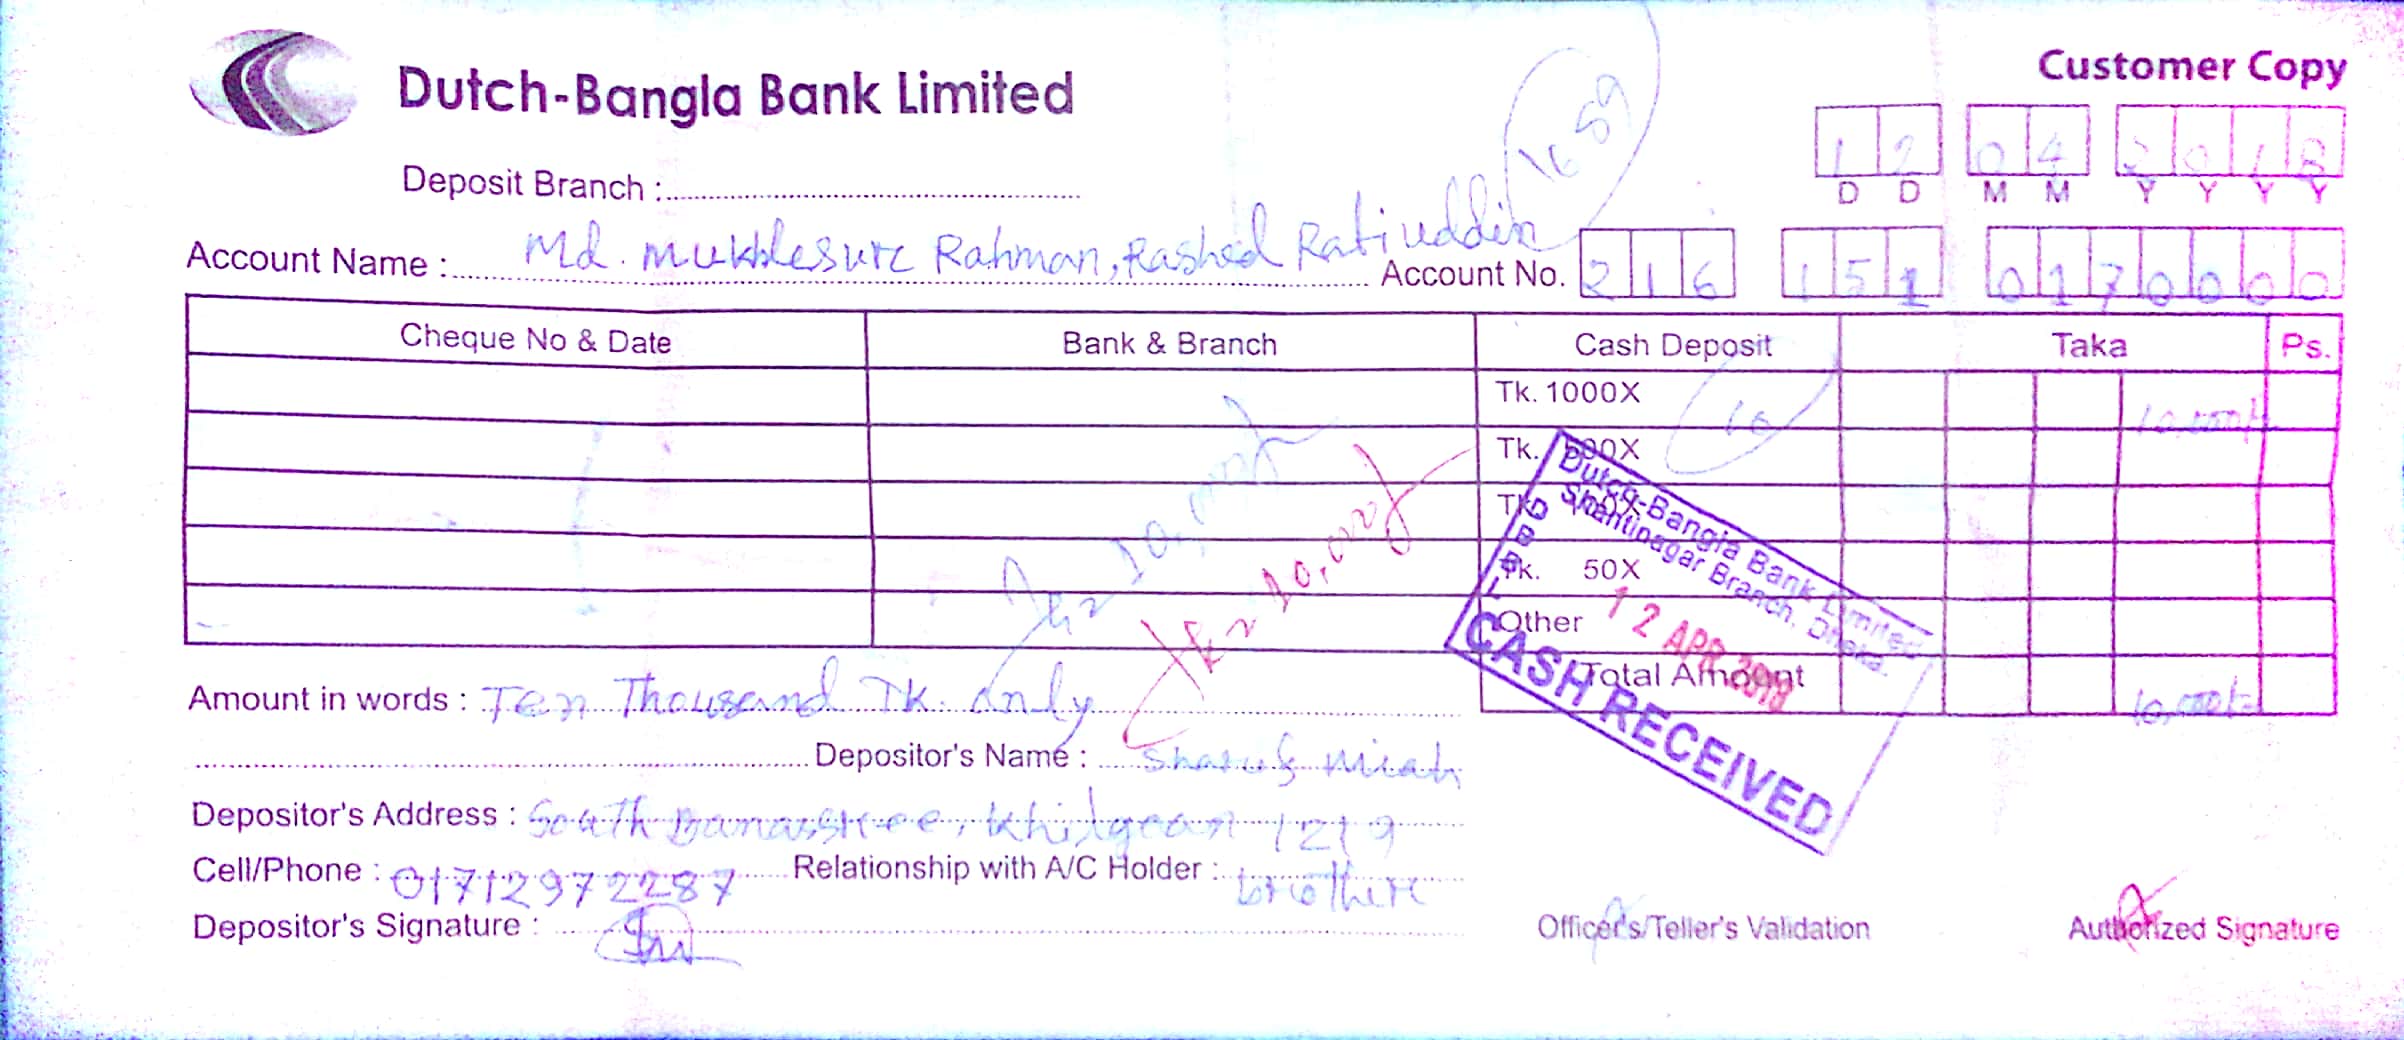 Customer Copy
Dutch-Bangla Bank Limited
1659
12 04 2018
D D M M Y Y Y Y
Deposit Branch :
Account Name : Md. Mukhlesure Rahman, Rashed Rafiuddin Account No. 216 151 0170000
Cheque No & Date Bank & Branch Cash Deposit Taka Ps.
Tk. 1000X 10 10,000/-
Tk. 500X
Tk.
Tk. 50X
Other
Total Amount 10,000/-
Tk= 10,000/-
Tk= 10,000/-
Dutch-Bangla Bank Limited
Shantinagar Branch, Dhaka.
DBBL
12 APR 2018
CASH RECEIVED
Amount in words : Ten Thousand Tk. only
Depositor's Name : Sharuf Miah
Depositor's Address : South Banassree, Khilgaon 1219
Cell/Phone : 01712972287 Relationship with A/C Holder : brothere
Depositor's Signature :
Officer's/Teller's Validation Authorized Signature